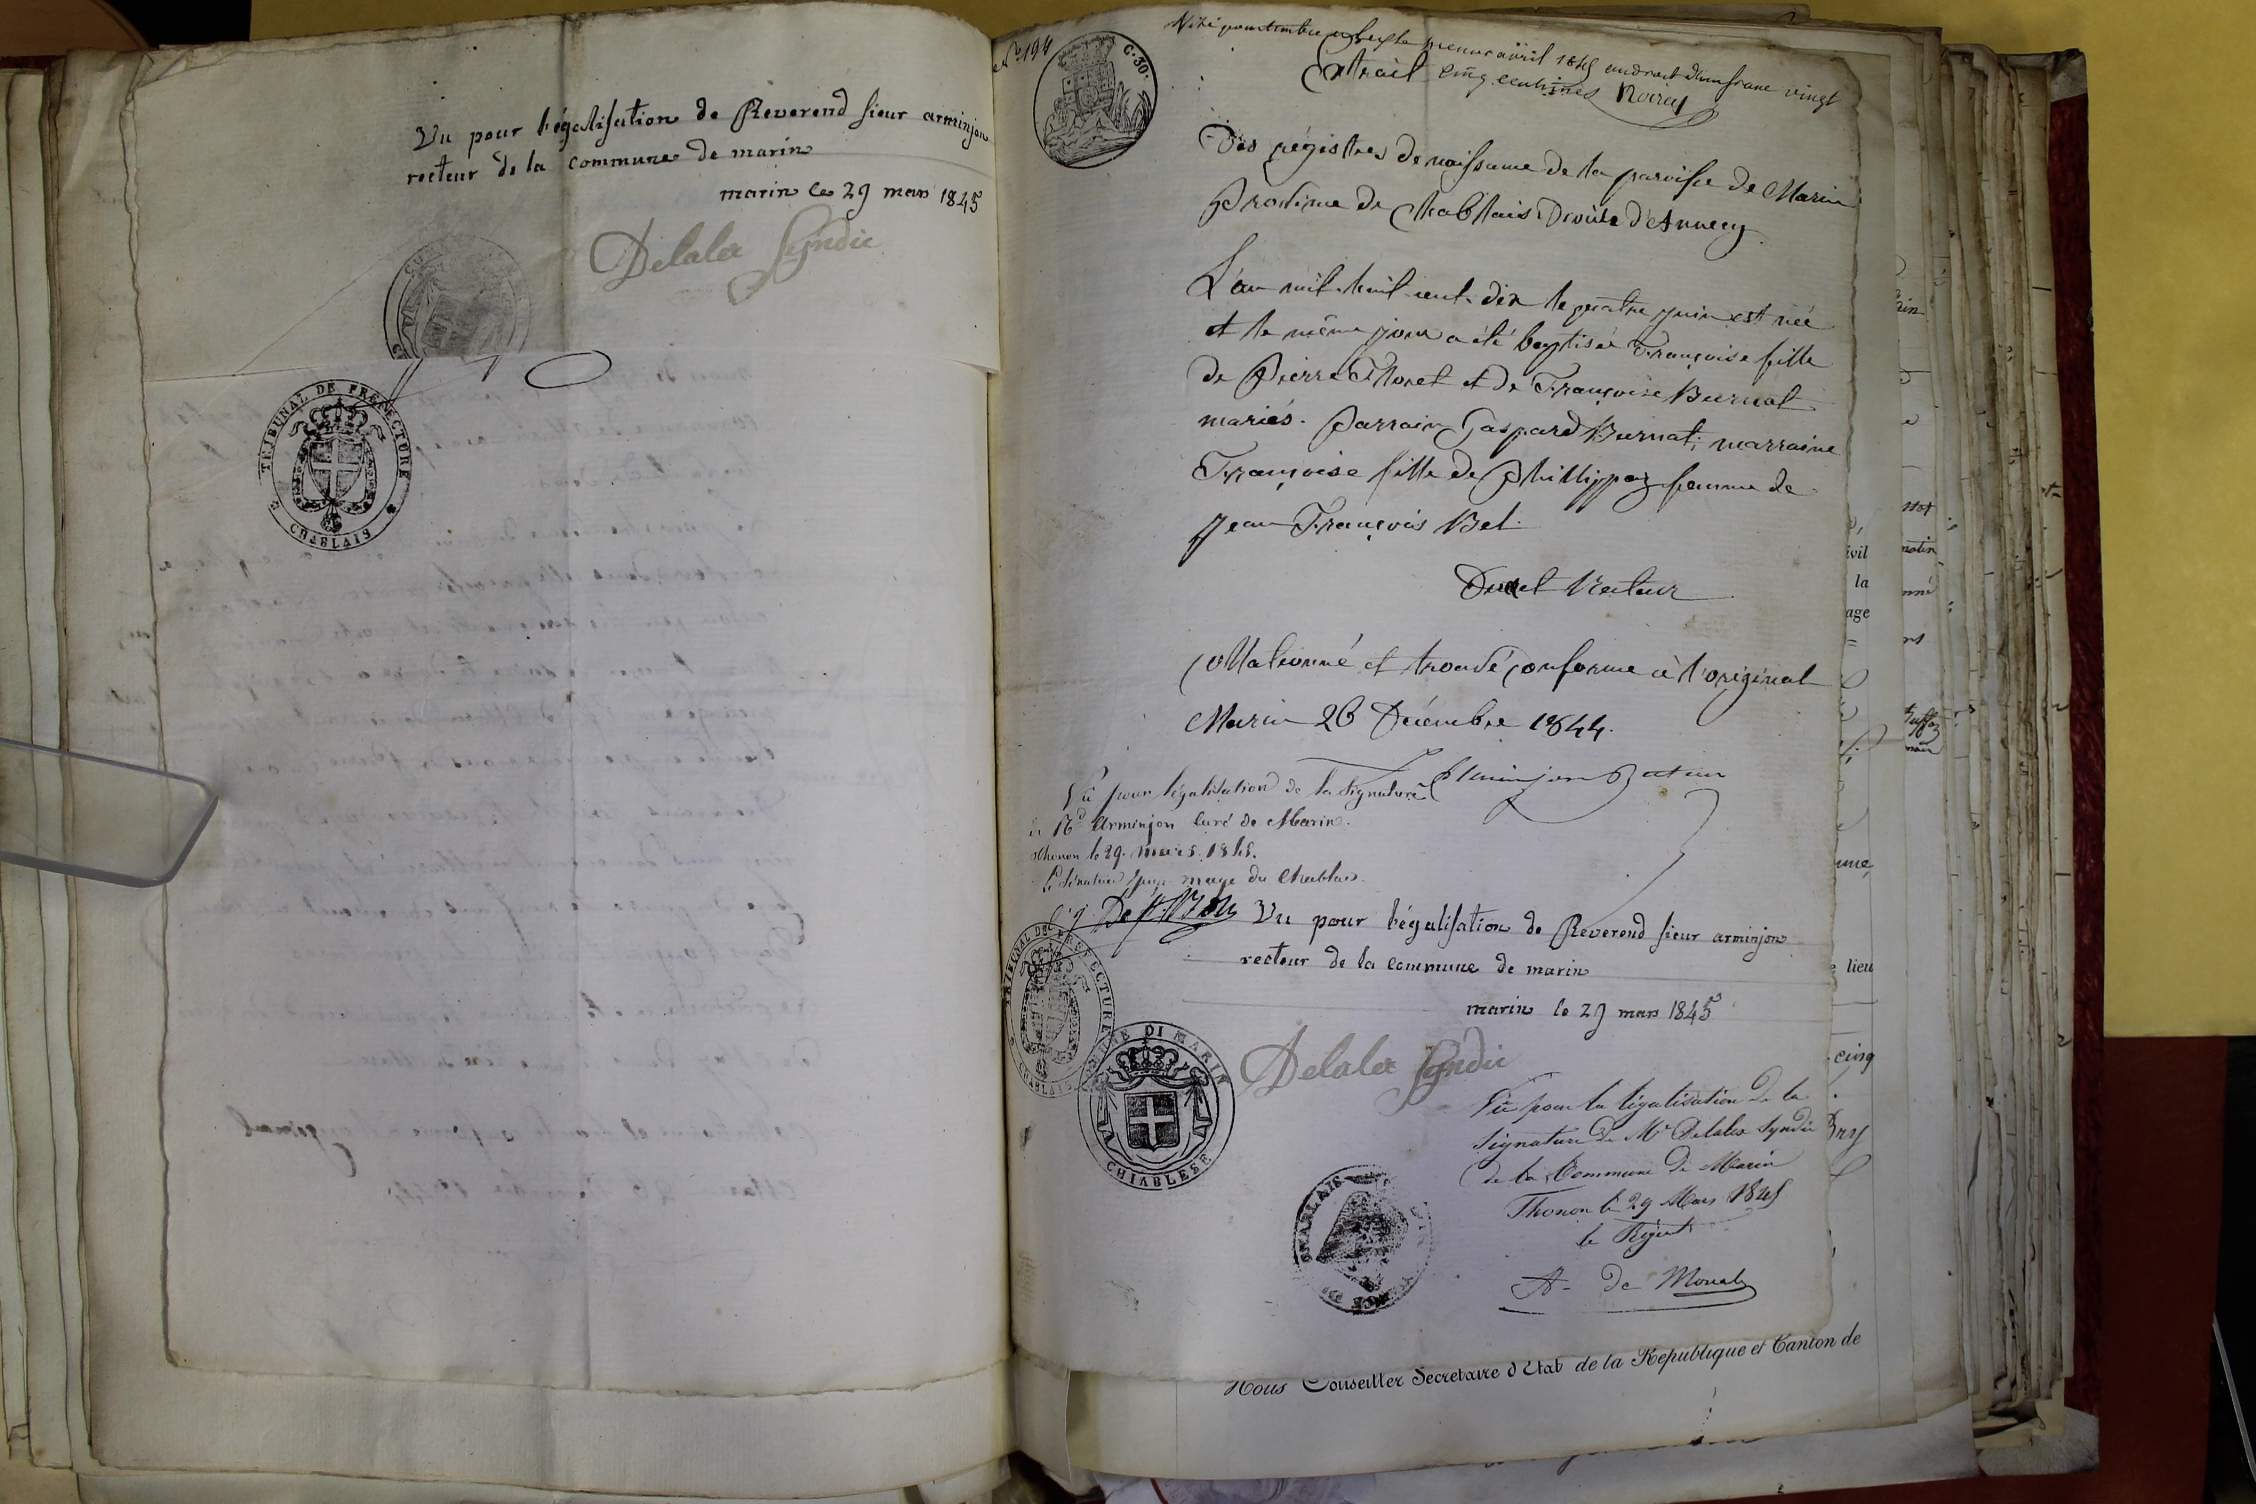 Vu pour légalisation de Reverend sieur arminjon
recteur de la commune de marin
marin le 29 mars 1845
Delalex Syndic
TRIBUNAL DE PREFECTURE
CHABLAIS
N° 194
C. 30.
Visé pour timbre premier avril 1845 au droit d'un franc vingt
cinq centimes
Extrait
Des régistres de naissance de la paroisse de Marin
Province de Chablais Diocèse d'Annecy.
L'an mil huit cent dix le quatre juin est née
et le même jour a été baptisée Françoise fille
de Pierre Thoret et de Françoise Burnat
mariés. Parrain Gaspard Burnat; marraine
Françoise fille de Phillippaz femme de
Jean François Bel.
Duret Recteur
Collationné et trouvé conforme à l'original
Marin 26 Décembre 1844.
Arminjon Recteur
Vû pour légalisation de la signature
de Rd Arminjon curé de Marin.
Thonon le 29 mars 1845.
Le Sénateur Juge mage du Chablais
Vu pour légalisation de Reverend sieur arminjon
recteur de la commune de marin
marin le 29 mars 1845
TRIBUNAL DE PREFECTURE
CHABLAIS
COMUNE DI MARIN
CHIABLESE
Delalex Syndic
Vû pour la légalisation de la
signature de Mr Delalex Syndic
de la Commune de Marin
Thonon le 29 Mars 1845
le Régent
A. de
CHABLAIS
Nous Conseiller Secretaire d'Etat de la Republique et Canton de
ivil
la
age
lieu
cinq